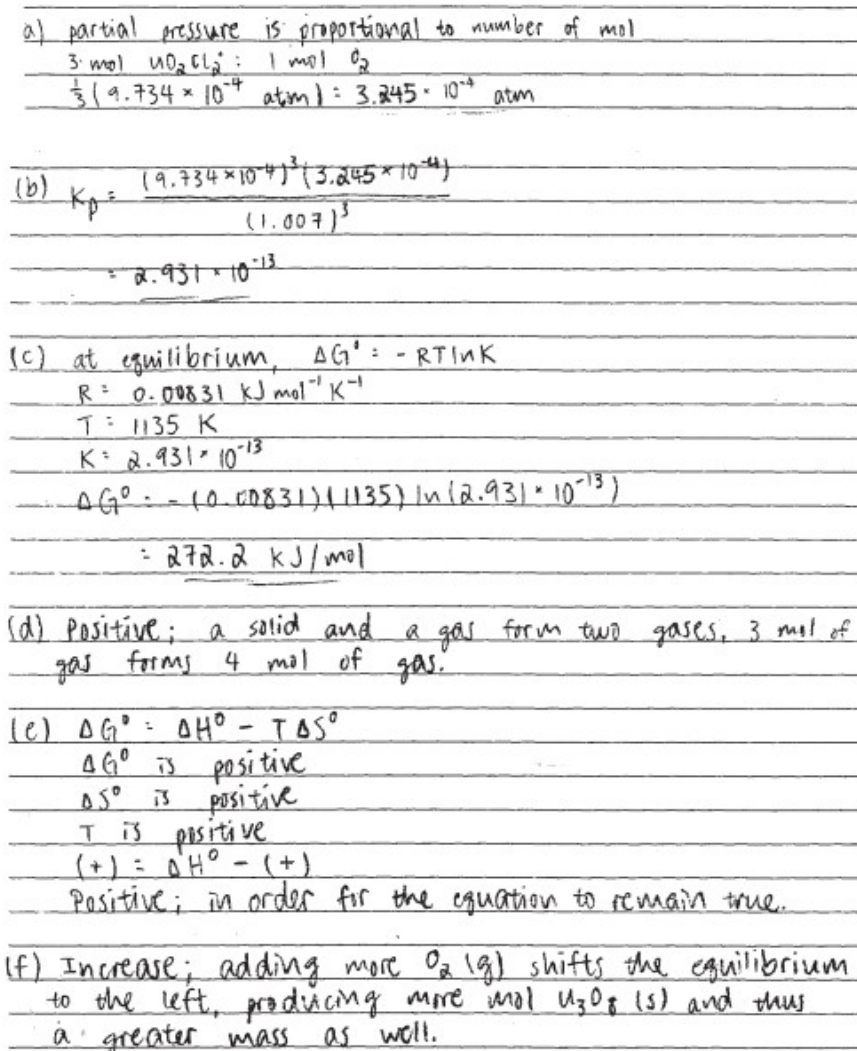 a) partial pressure is proportional to number of mol
3 mol UO₂Cl₂ : 1 mol O₂
⅓(9.734 × 10⁻⁴ atm) = 3.245 × 10⁻⁴ atm
(b) Kp = (9.734 × 10⁻⁴)³(3.245 × 10⁻⁴)
(1.007)³
= 2.931 × 10⁻¹³
(c) at equilibrium, ΔG° = -RTlnK
R = 0.00831 kJ mol⁻¹ K⁻¹
T = 1135 K
K = 2.931 × 10⁻¹³
ΔG° = -(0.00831)(1135)ln(2.931 × 10⁻¹³)
= 272.2 kJ/mol
(d) Positive; a solid and a gas form two gases, 3 mol of
gas forms 4 mol of gas.
(e) ΔG° = ΔH° - TΔS°
ΔG° is positive
ΔS° is positive
T is positive
(+) = ΔH° - (+)
Positive; in order for the equation to remain true.
(f) Increase; adding more O₂ (g) shifts the equilibrium
to the left, producing more mol U₃O₈ (s) and thus
a greater mass as well.